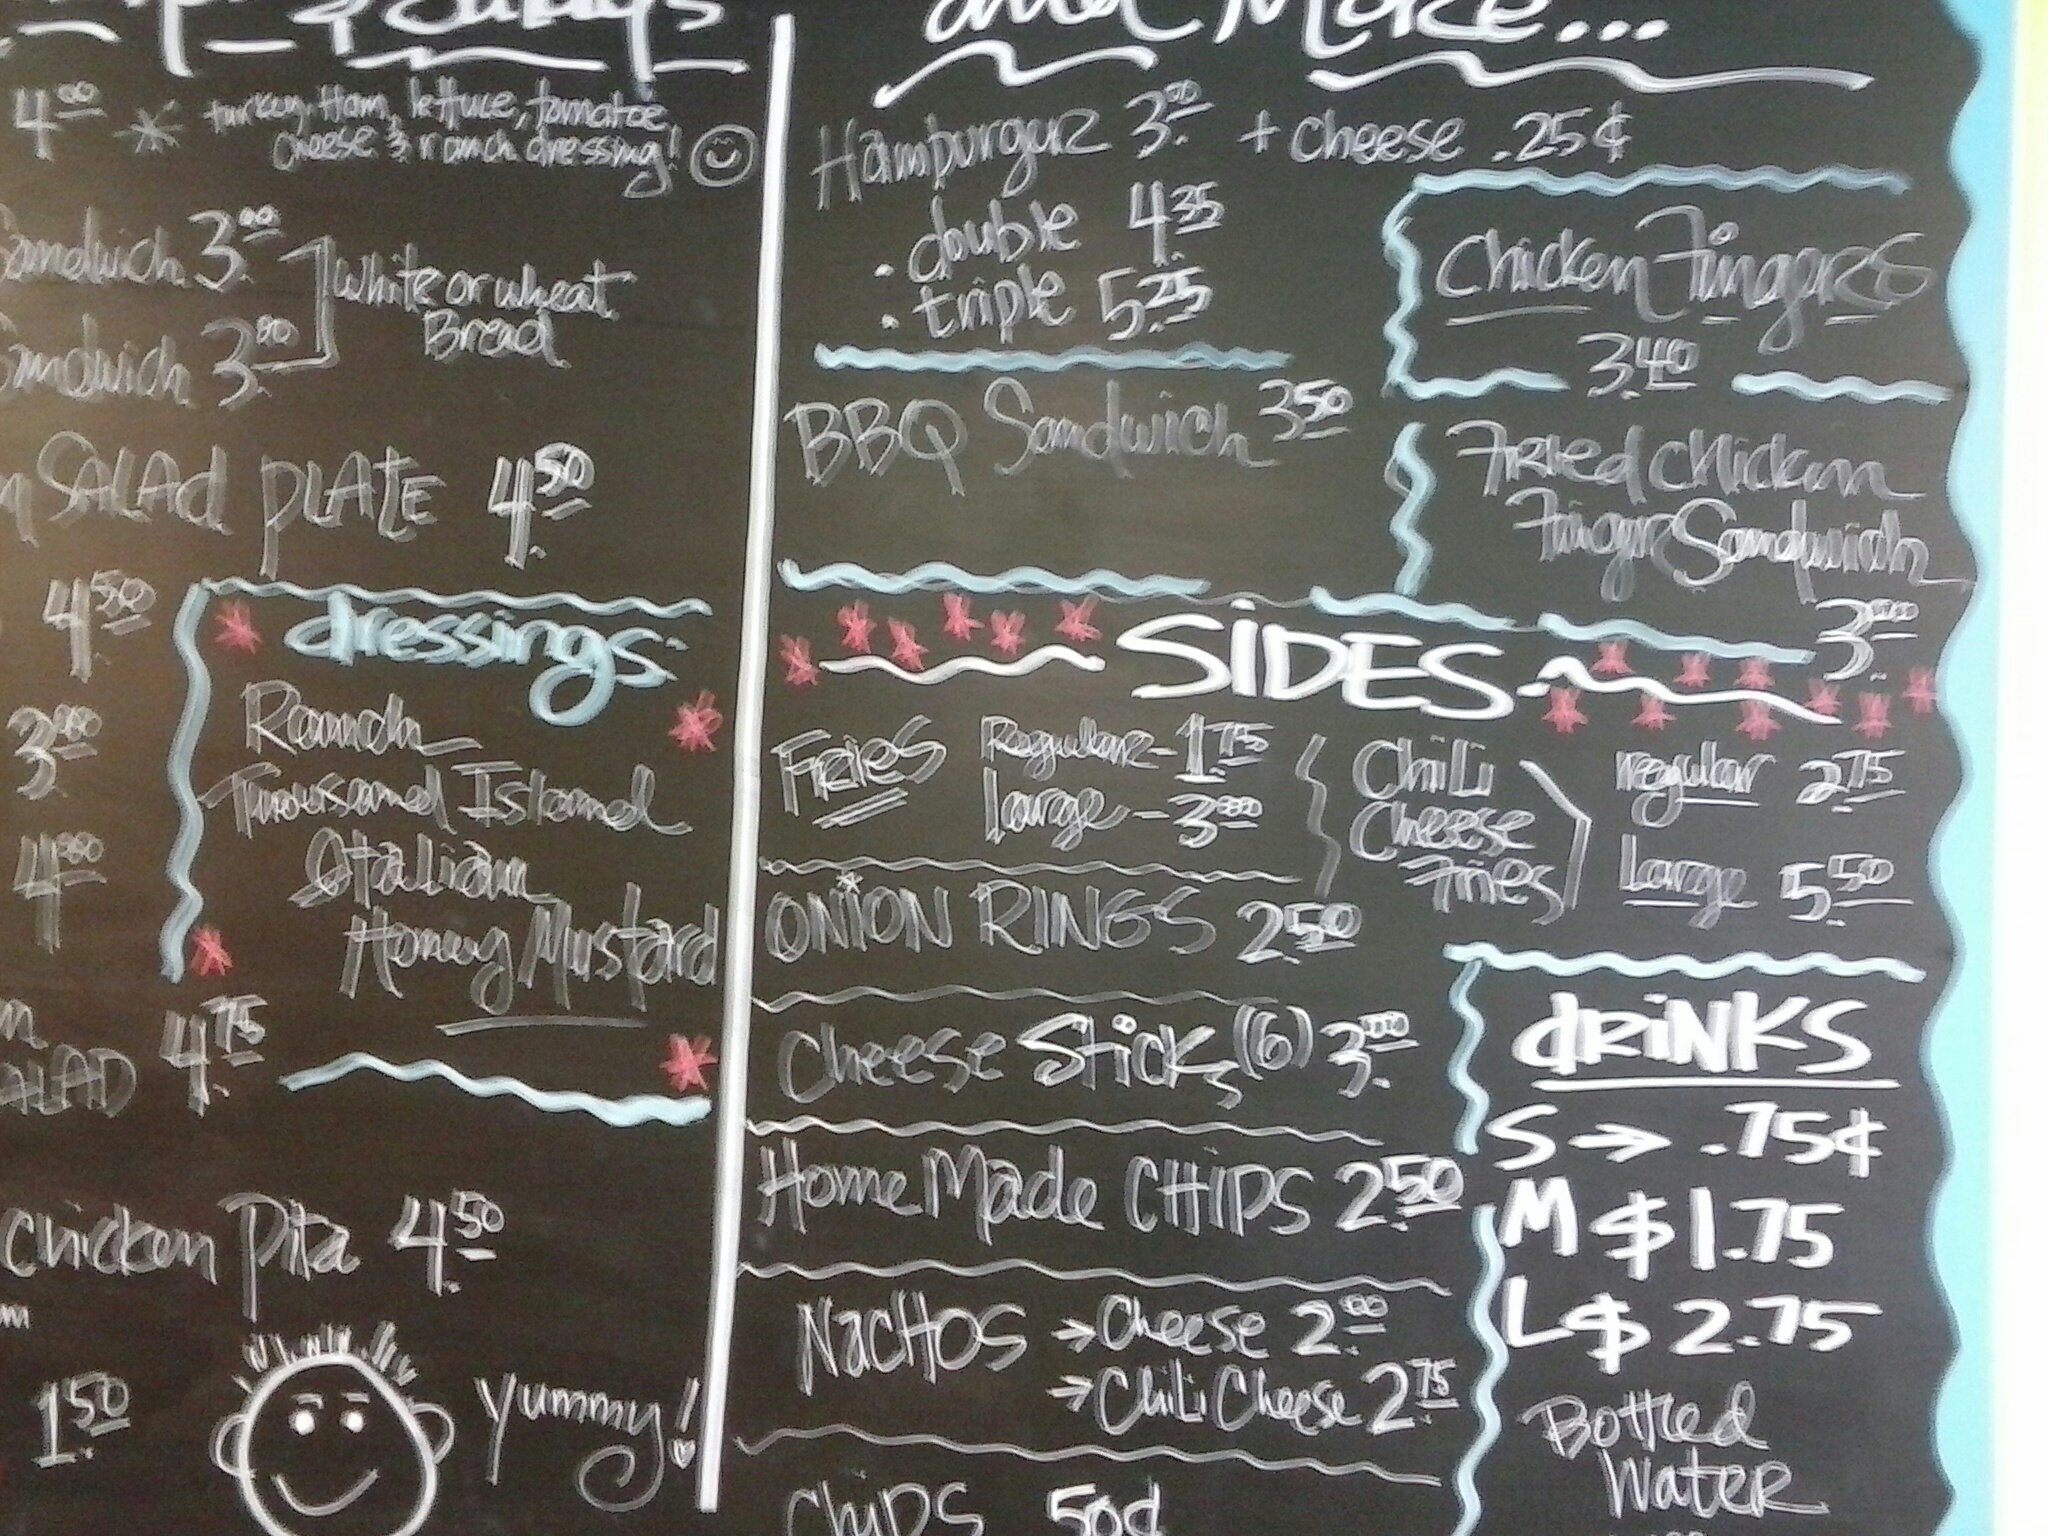 & Wraps
4.00 * turkey, Ham, lettuce, tomatoe,
cheese & ranch dressing!
Sandwich 3.00
White or wheat
Bread
Sandwich 3.00
SALAd PLATE 4.50
4.50
3.00
4.00
dressings:
Ranch
Thousand Island
Italian
Honey Mustard
4.75
SALAD
Chicken Pita 4.50
1.50
yummy!
and More...
Hamburger 3.00 + cheese .25¢
. double 4.35
. triple 5.25
Chicken Fingers
3.40
BBQ Sandwich 3.50
Fried Chicken
Finger Sandwich
3.00
SIDES
Fries Regular - 1.75
Large - 3.00
Chili
Cheese
Fries
regular 2.75
Large 5.50
ONION RINGS 2.50
Cheese Sticks (6) 3.00
Home Made CHIPS 2.50
NACHOS → Cheese 2.00
→ Chili Cheese 2.75
CHIPS 50¢
dRiNKS
S → .75¢
M $1.75
L $2.75
Bottled
Water